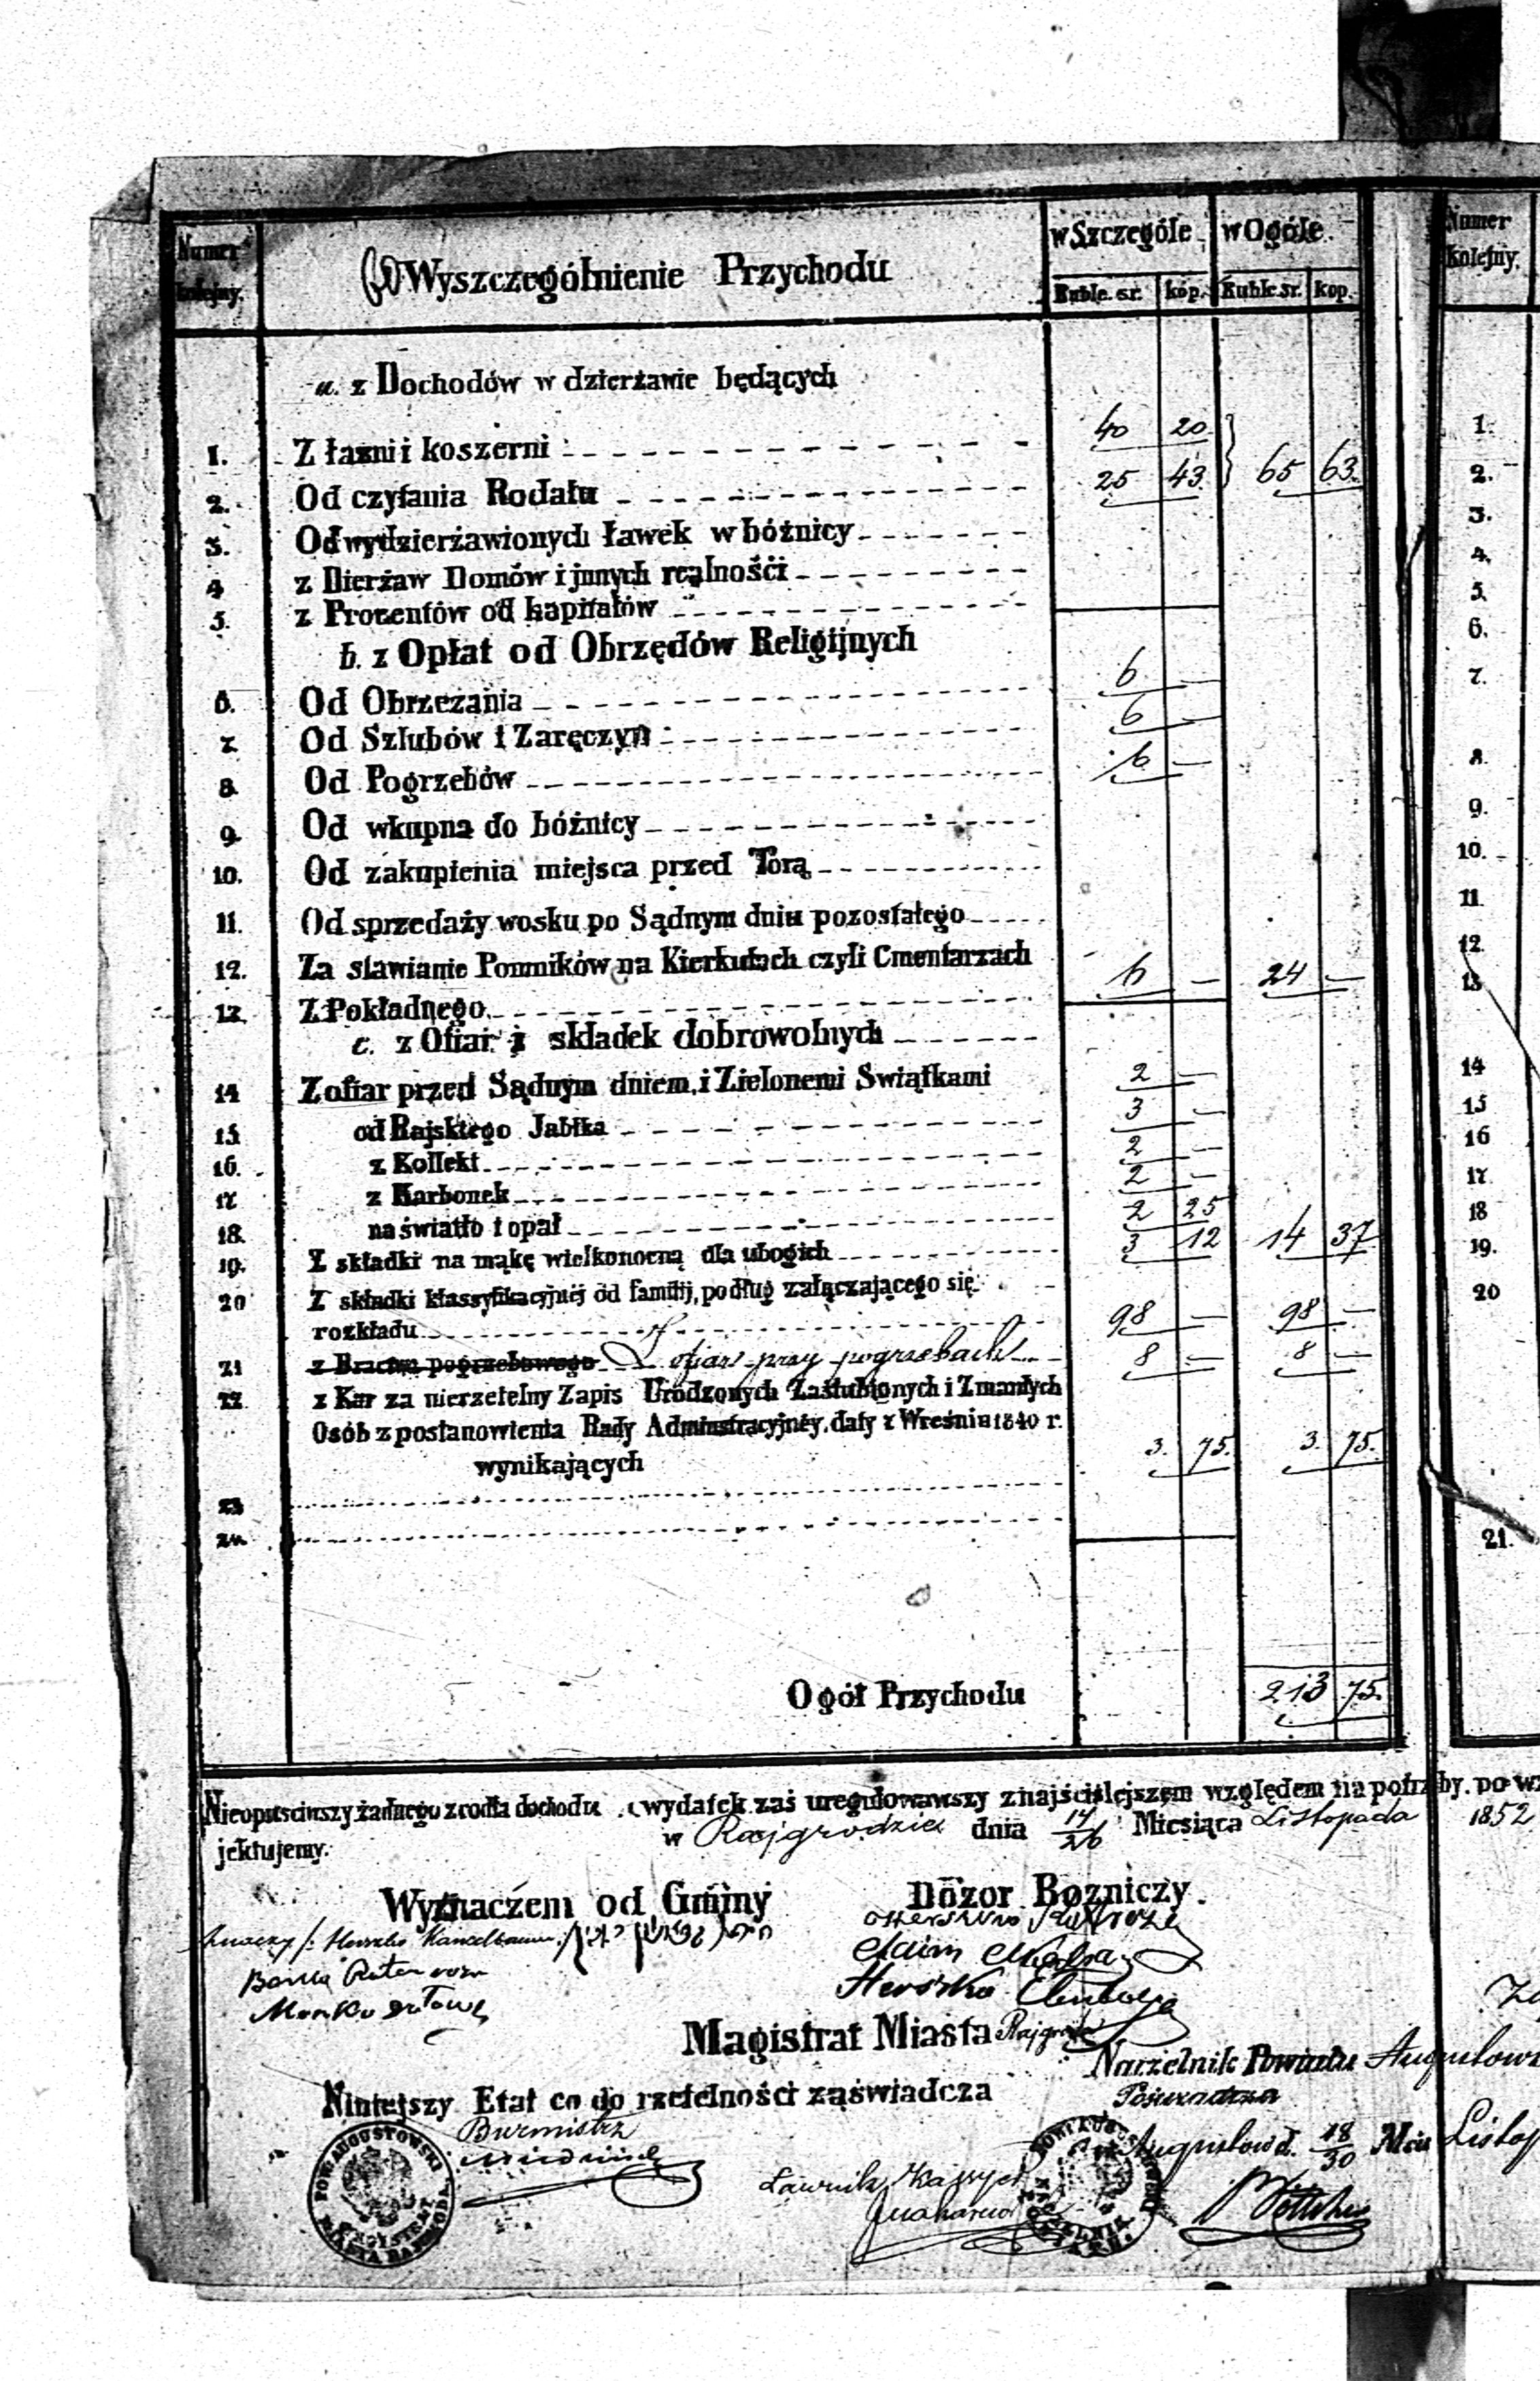 Numer kolejny.
Wyszczegółnienie Przychodu
w Szczególe
w Ogóle
Ruble. sr. kóp. Ruble. sr. kop.
a. z Dochodów w dzierżawie będących
1. Z łazni i koszerni 40 20
2. Od czytania Rodału 25 43 65 63
3. Od wydzierżawionych ławek w bóżnicy
4 z Dierżaw Domów i jnnych realnośći
5. z Procentów od kapitałów
b. z Opłat od Obrzędów Religijnych
6. Od Obrzezania 6 —
7. Od Szlubów i Zaręczyn 6 —
8. Od Pogrzebów 6 —
9. Od wkupna do bóżnicy
10. Od zakupienia miejsca przed Torą
11. Od sprzedaży wosku po Sądnym dniu pozostałego
12. Za stawianie Pomników na Kierkutach czyli Cmentarzach 6 — 24 —
13. Z Pokładnego
c. z Ofiar i składek dobrowolnych
14 Z ofiar przed Sądnym dniem, i Zielonemi Swiątkami 2 —
15 od Rajskiego Jabłka 3 —
16. z Kollekt 2 —
17 z Karbonek 2 —
18. na światło i opał 2 25
19. Z składki na mąkę wielkonocną dla ubogich 3 12 14 37
20 Z składki klassyfikacyjnéj od familij, podług załączającego się
rozkładu 98 — 98 —
21 z Bractw pogrzebowego Z ofiar przy pogrzebach 8 — 8 —
22 z Kar za nierzetelny Zapis Urodzonych Zaślubionych i Zmarłych
Osób z postanowienia Rady Administracyjnéy, daty z Wreśnia 1840 r.
wynikających 3. 75. 3. 75.
23
24.
Ogół Przychodu 213 75.
Nieopusciwszy żadnego zrodła dochodu, wydatek zaś uregulowawszy z najściślejszem względem na potrzeby. po w
jektujemy. w Rajgrodzie dnia 14/26 Miesiąca Listopada 1852
Wyznaczem od Gminy
Dózor Bozniczy.
Herszko
Herszko
Magistrat Miasta Rajgrod
Naczelnik Powiatu Augustow
Niniejszy Etat co do rzetelności zaświadcza
Poświadcza
Burmistrz
Augustow d. 18/30 Mca Listop
Ławnik
POW. AUGUSTOWSKI
Numer Kolejny.
1.
2.
3.
4.
5.
6.
7.
8.
9.
10.
11.
12.
13
14
15
16
17
18
19.
20
21.